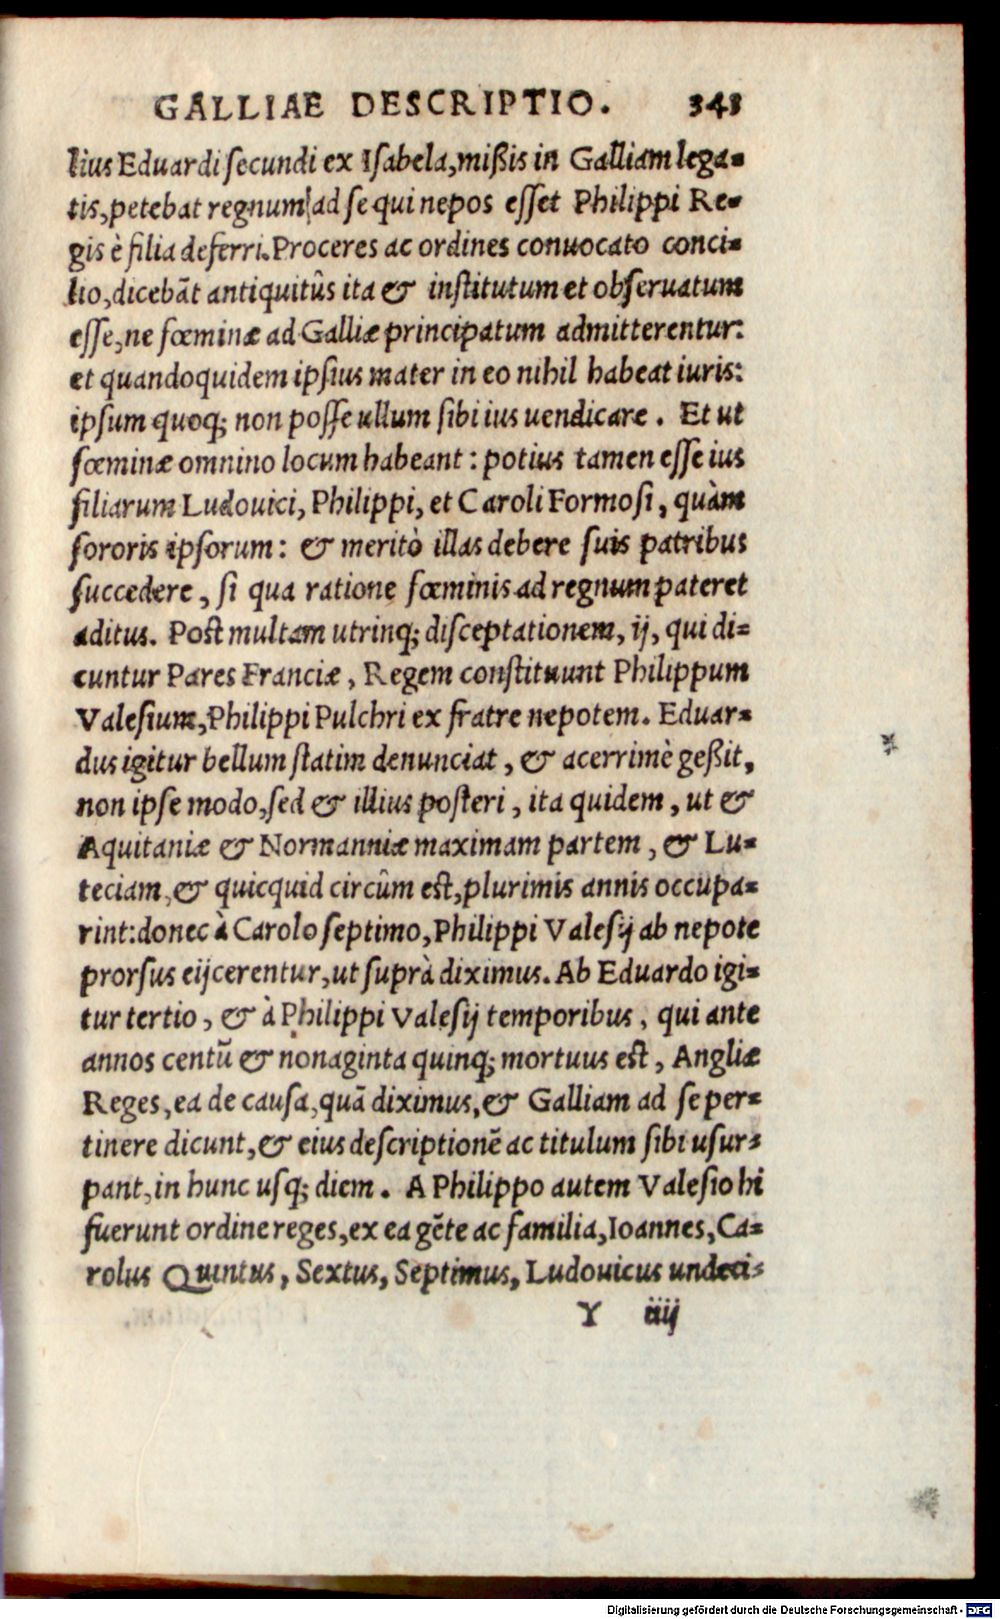 GALLIAE DESCRIPTIO. 343
lius Eduardi secundi ex Isabela, mißis in Galliam lega=
tis, petebat regnum ad se qui nepos esset Philippi Re=
gis è filia deferri. Proceres ac ordines conuocato conci=
lio, dicebāt antiquitûs ita & institutum et obseruatum
esse, ne fœminæ ad Galliæ principatum admitterentur:
et quandoquidem ipsius mater in eo nihil habeat iuris:
ipsum quoq; non posse ullum sibi ius uendicare. Et ut
fœminæ omnino locum habeant: potius tamen esse ius
filiarum Ludouici, Philippi, et Caroli Formosi, quàm
sororis ipsorum: & meritò illas debere suis patribus
succedere, si qua ratione fœminis ad regnum pateret
aditus. Post multam utrinq; disceptationem, ij, qui di=
cuntur Pares Franciæ, Regem constituunt Philippum
Valesium, Philippi Pulchri ex fratre nepotem. Eduar=
dus igitur bellum statim denunciat, & acerrimè geßit,
non ipse modo, sed & illius posteri, ita quidem, ut &
Aquitaniæ & Normanniæ maximam partem, & Lu=
teciam, & quicquid circûm est, plurimis annis occupa=
rint: donec à Carolo septimo, Philippi Valesij ab nepote
prorsus eijcerentur, ut suprà diximus. Ab Eduardo igi=
tur tertio, & à Philippi Valesij temporibus, qui ante
annos centū & nonaginta quinq; mortuus est, Angliæ
Reges, ea de causa, quā diximus, & Galliam ad se per=
tinere dicunt, & eius descriptionē ac titulum sibi usur=
pant, in hunc usq; diem. A Philippo autem Valesio hi
fuerunt ordine reges, ex ea gēte ac familia, Ioannes, Ca=
rolus Quintus, Sextus, Septimus, Ludouicus undeci=
Y iiij
Digitalisierung gefördert durch die Deutsche Forschungsgemeinschaft - DFG